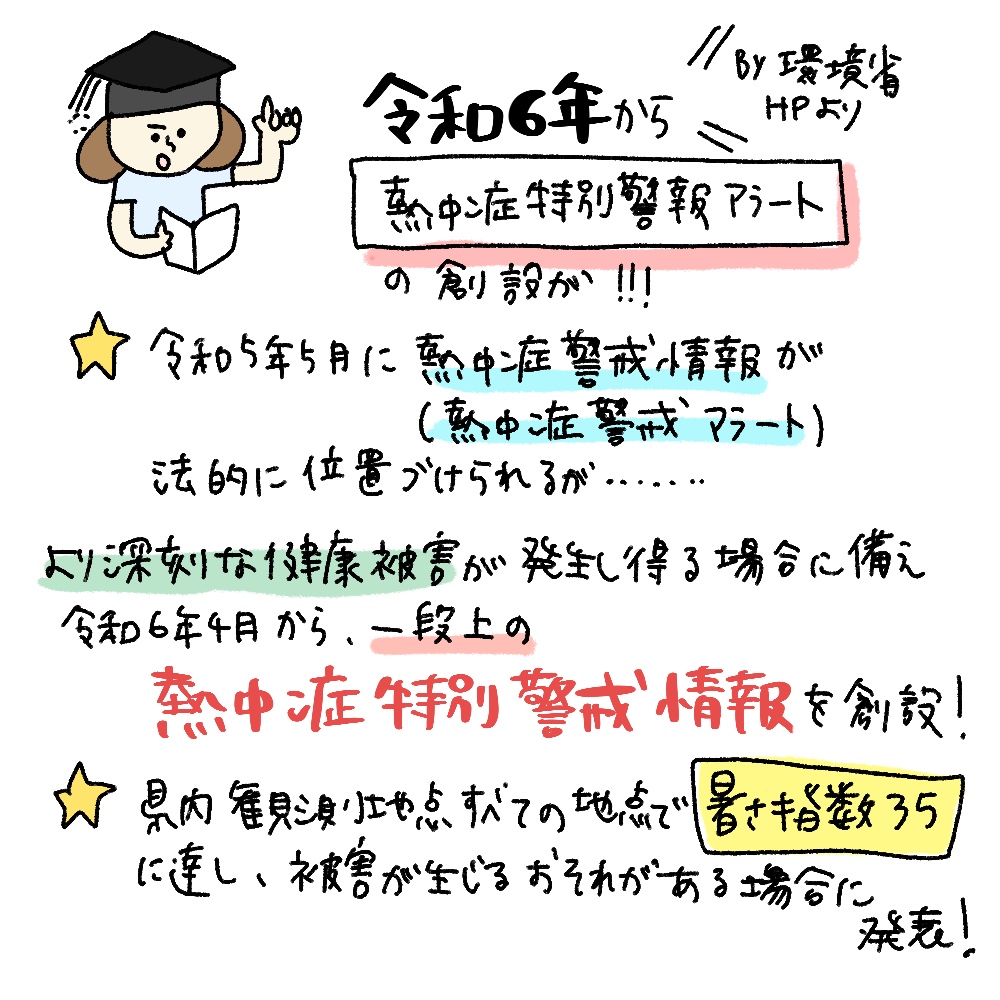 BY 環境省
HPより
令和6年から
熱中症特別警報アラート
の創設が!!!
令和5年5月に熱中症警戒情報が
(熱中症警戒アラート)
法的に位置づけられるが‥‥‥‥
より深刻な健康被害が発生し得る場合に備え
令和6年4月から、一段上の
熱中症特別警戒情報を創設!
県内観測地点すべての地点で暑さ指数35
に達し、被害が生じるおそれがある場合に
発表!